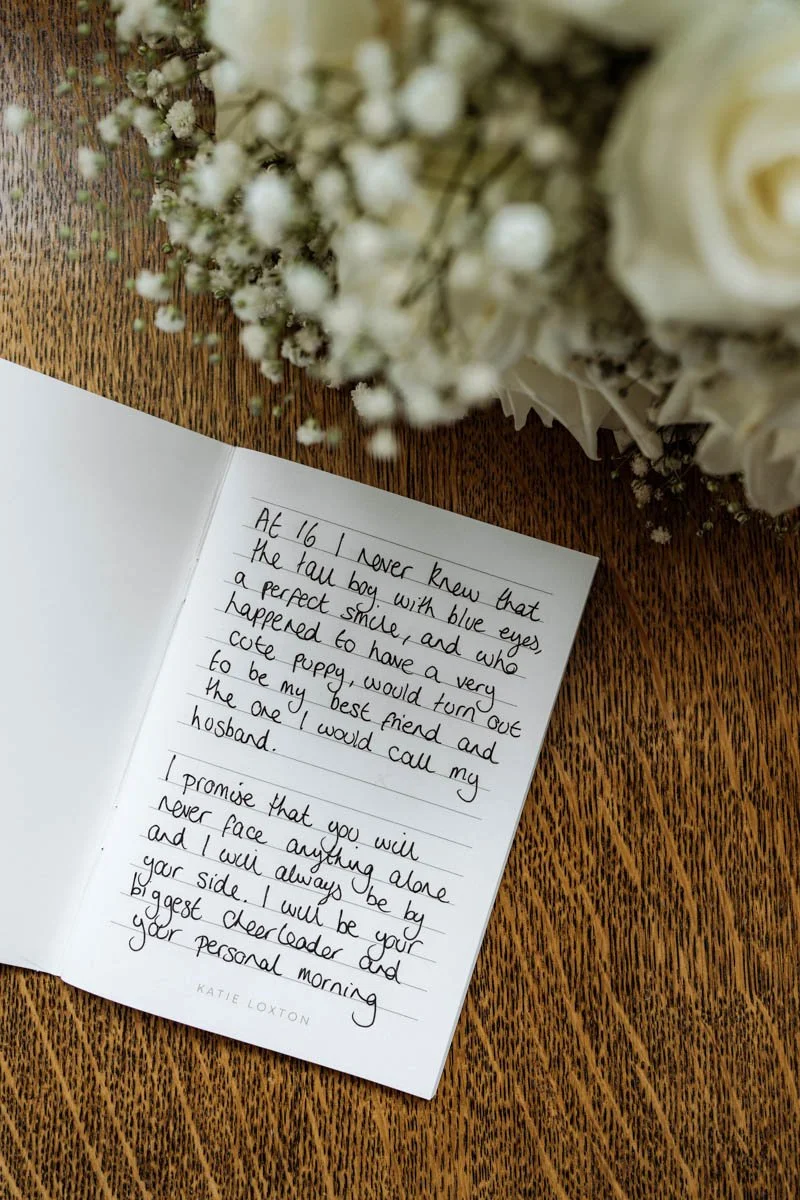 At 16 I never knew that
the tall boy with blue eyes,
a perfect smile, and who
happened to have a very
cute puppy, would turn out
to be my best friend and
the one I would call my
husband.
I promise that you will
never face anything alone
and I will always be by
your side. I will be your
biggest cheerleader and
your personal morning
KATIE LOXTON